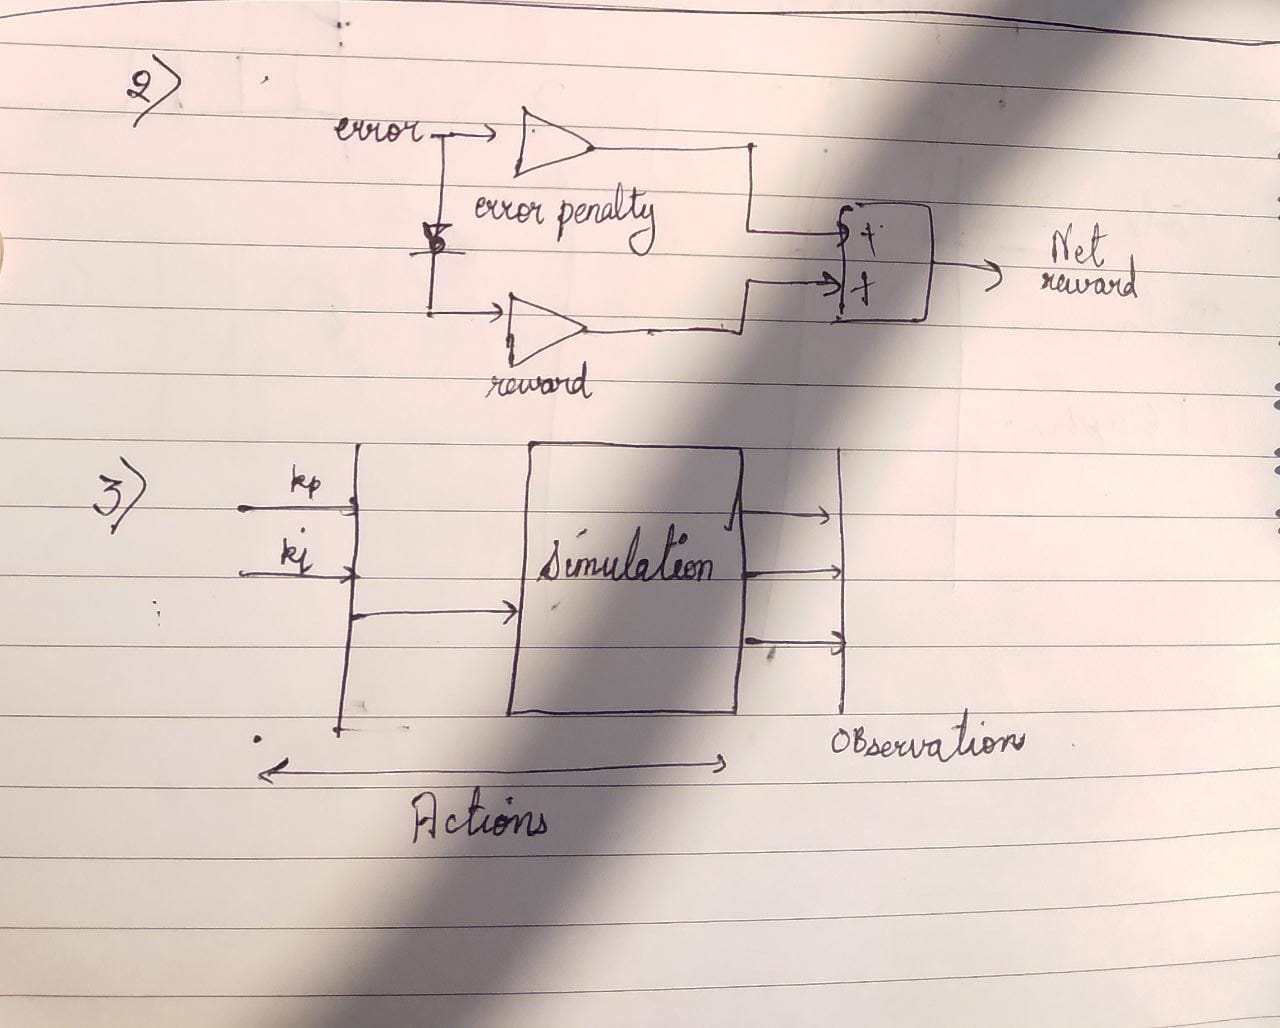 2)
error
error penalty
+
+
Net
reward
reward
3)
kp
ki
Simulation
Observations
Actions